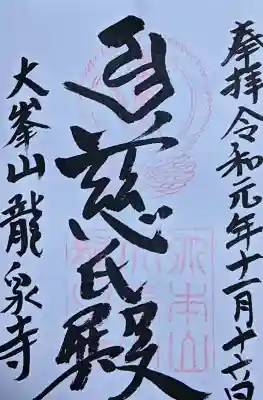 奉拝令和元年十一月十六日
慈氏殿
大峯山龍泉寺